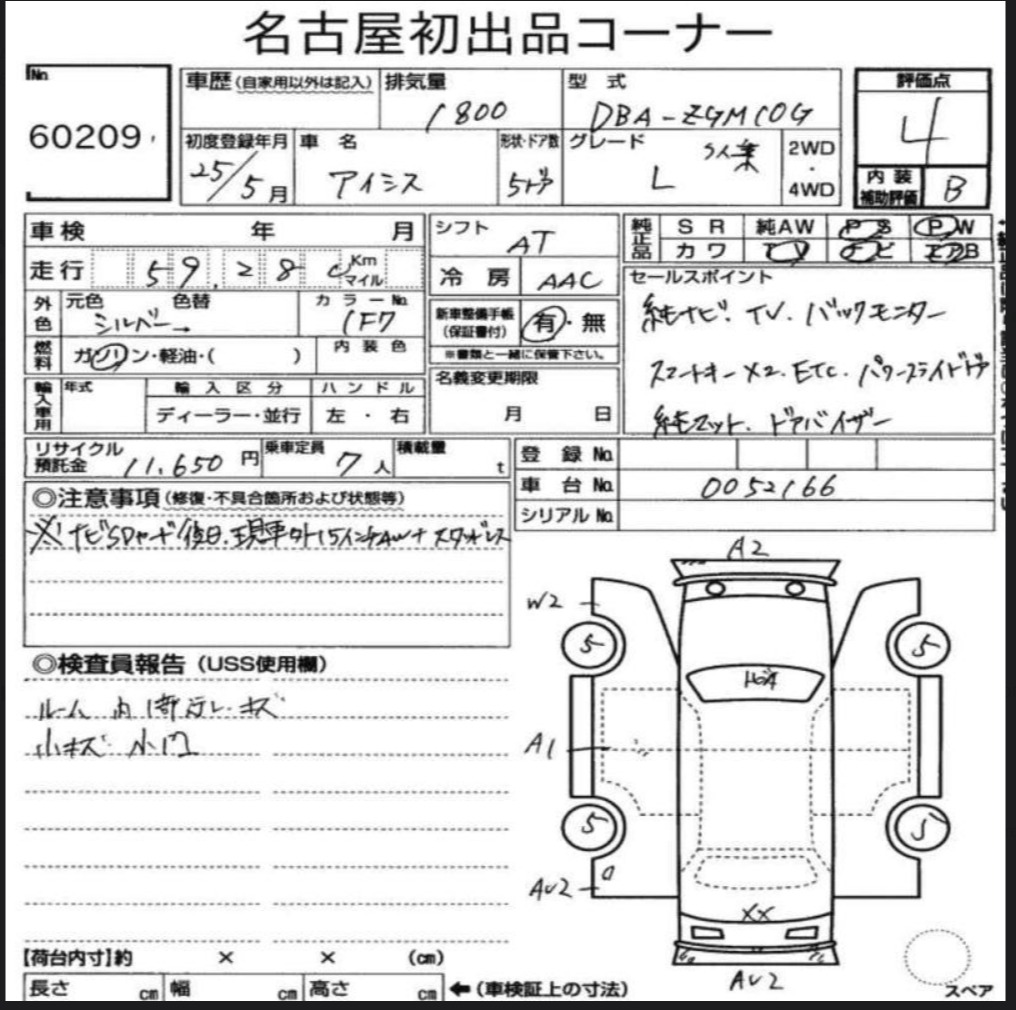 名古屋初出品コーナー
No. 60209
車歴(自家用以外は記入)
排気量 1800
型式 DBA-ZGM10G
評価点 4
初度登録年月 25/5月
車名 アイシス
形状・ドア数 5ドア
グレード L
2WD・4WD
内装補助評価 B
車検 年 月
シフト AT
純正品 SR 純AW PS PW
カワ TV ナビ エアB
走行 59,28 Km マイル
冷房 AAC
セールスポイント
外色 元色 シルバー→ 色替 カラーNo. 1F7
新車整備手帳(保証書付) 有・無
※書類と一緒に保管下さい。
純ナビ.TV.バックモニター
燃料 ガソリン・軽油・( ) 内装色
スマートキー×2.ETC.パワースライドドア
輸入車用 年式 輸入区分 ハンドル
ディーラー・並行 左・右
名義変更期限
月 日
純マット.ドアバイザー
リサイクル預託金 11,650円
乗車定員 7人
積載量 t
登録No.
車台No. 0052166
シリアルNo.
◎注意事項(修復・不具合箇所および状態等)
※ナビSDカード後日.現車外15インチAW+スタッドレス
◎検査員報告(USS使用欄)
ルーム内 キズ
小キズ 小凹
A2
W2
5 5
A1
5 5
AU2
XX
AU2
【荷台内寸】約 × × (cm)
長さ cm 幅 cm 高さ cm ←(車検証上の寸法)
スペア